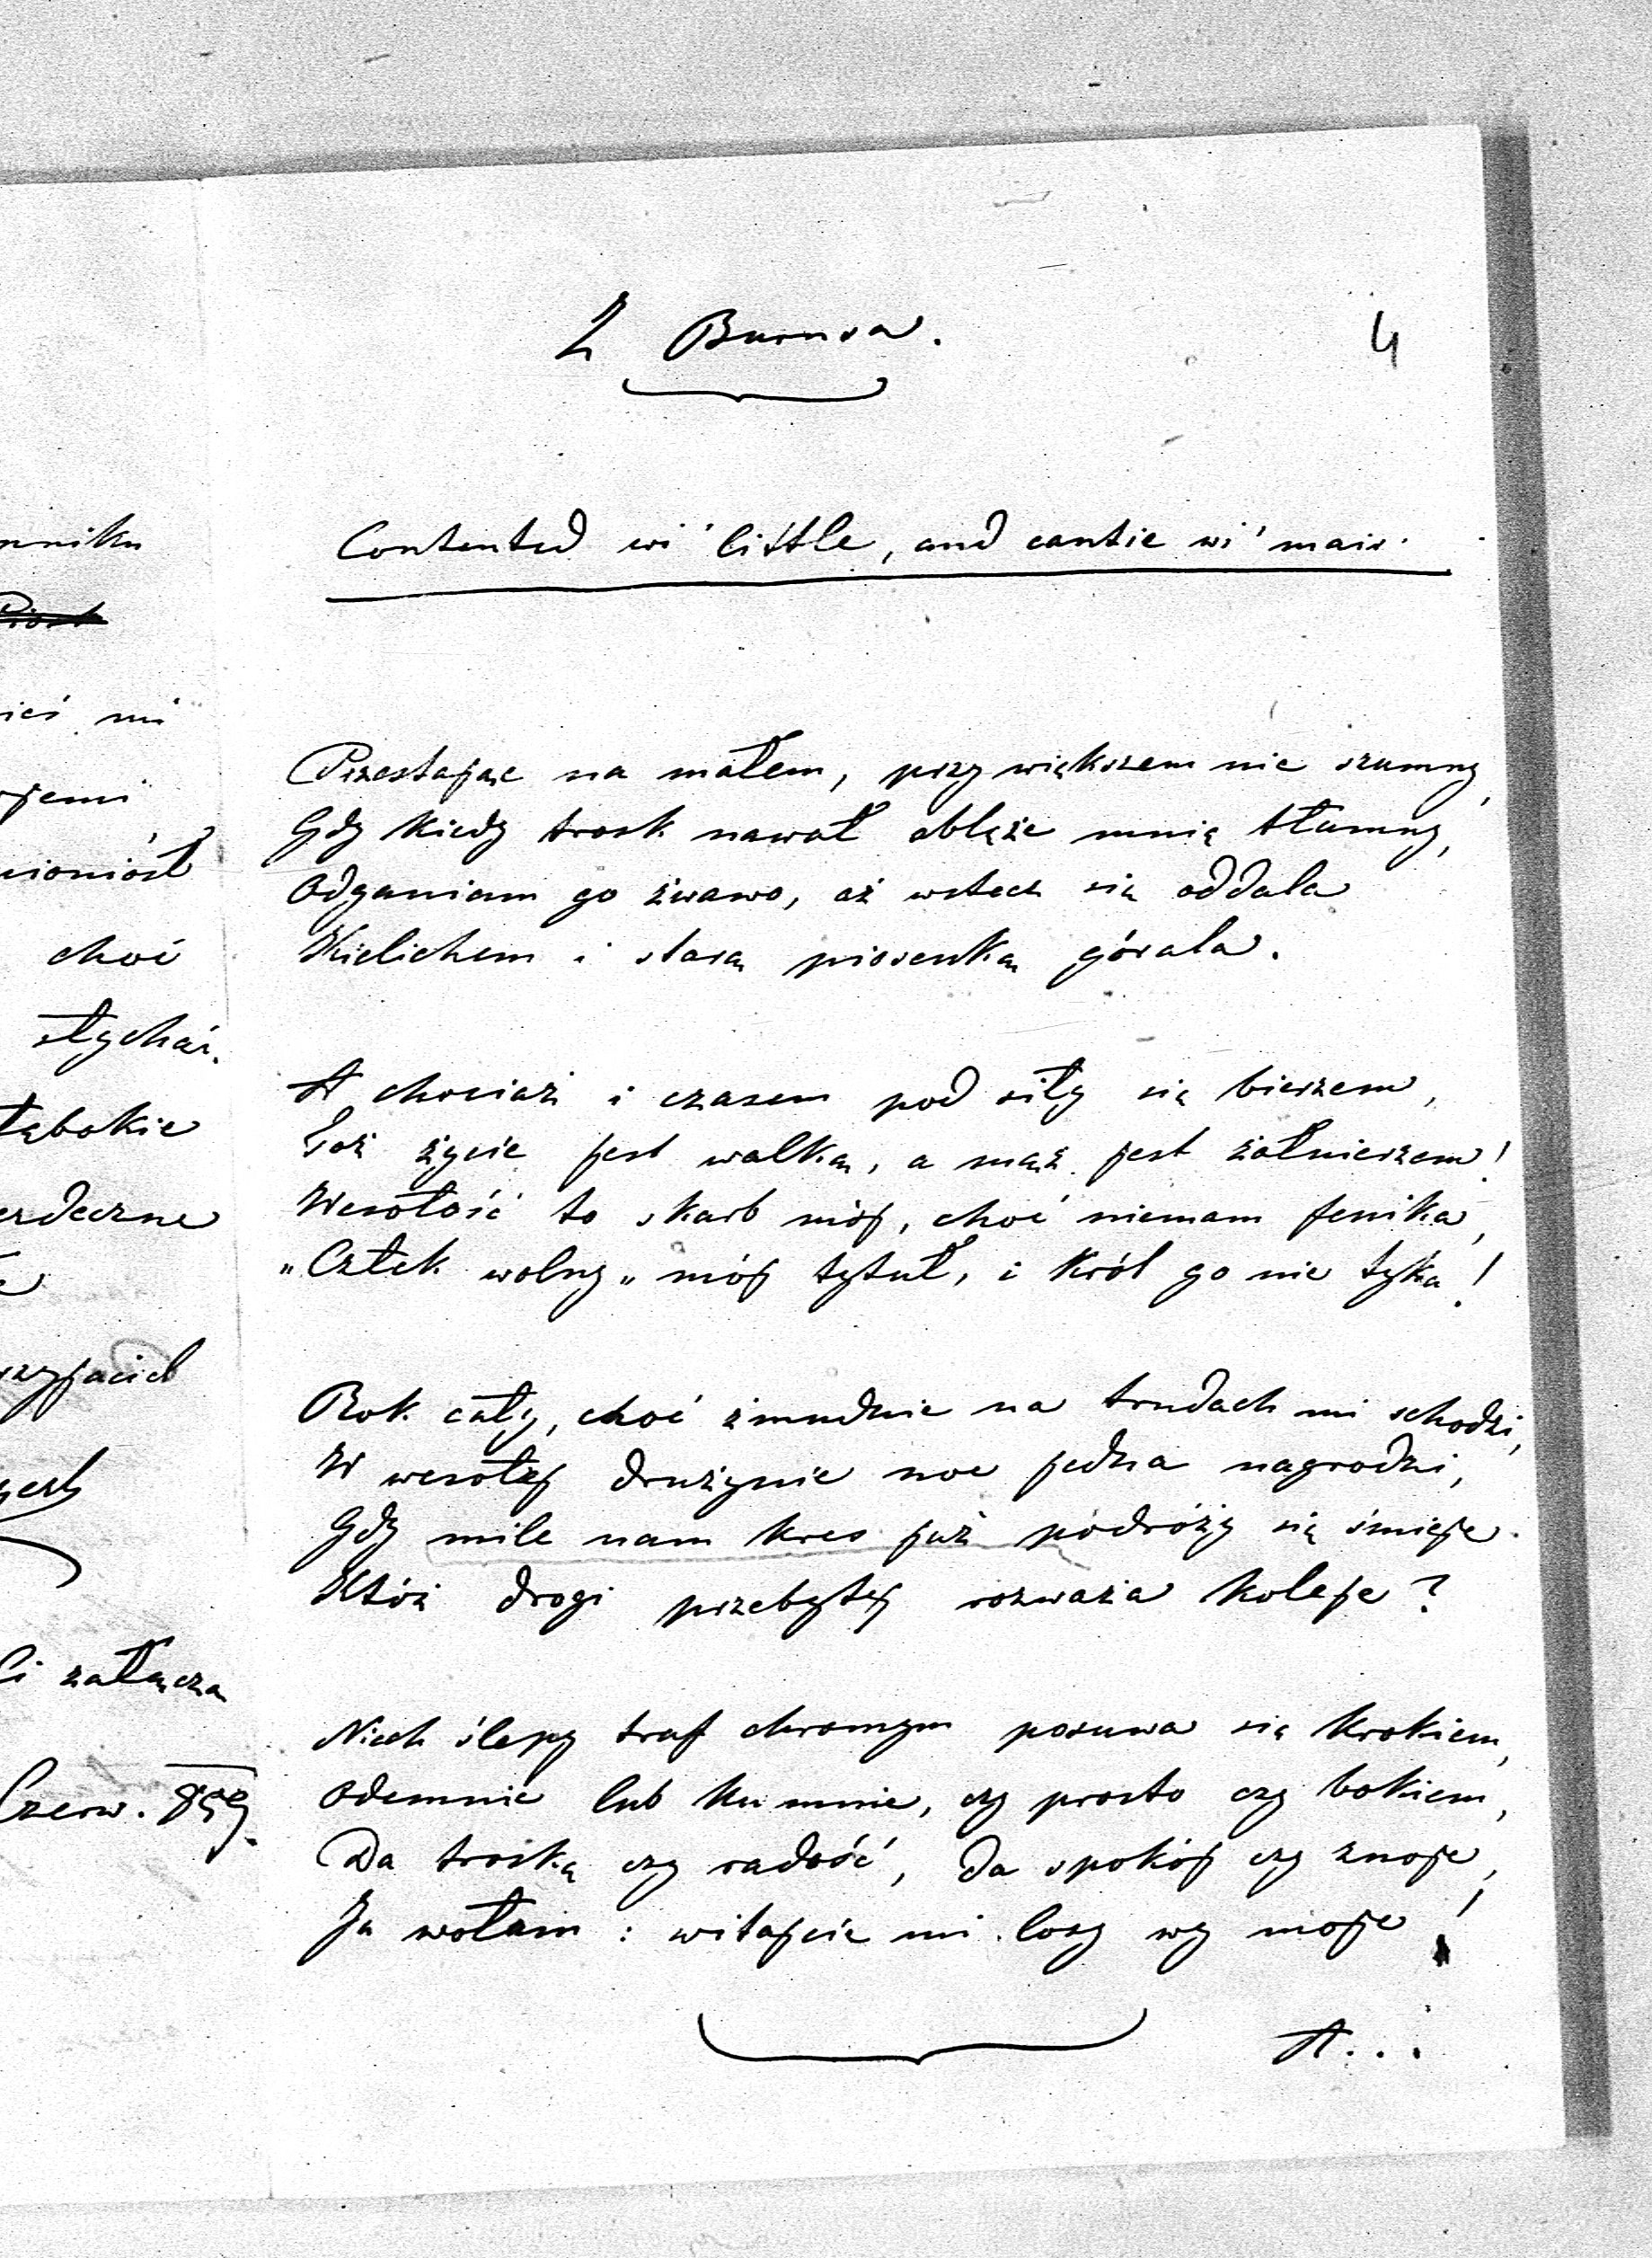 Z Burnsa.
4
Contented wi' little, and cantie wi' mair.
Przestając na małem, przy większem nie szumny,
Gdy kiedy trosk nawał oblęże mnię tłumny,
Odganiam go żwawo, aż wstecz się oddala
Kielichem i starą piosenką górala.
A chociaż i czasem pod siły się bierzem,
Toż życie jest walką, a mąż jest żołnierzem!
Wesołość to skarb mój, choć niemam fenika,
„Człek wolny„ mój tytuł, i król go nie tyka!
Rok cały, choć żmudnie na trudach mi schodzi,
W wesołej drużynie noc jedna nagrodzi,
Gdy mile nam kres już podróży się śmieje.
Któż drogi przebytej rozważa koleje?
Niech ślepy traf chromym posuwa się krokiem,
Odemnie lub ku mnie, czy prosto czy bokiem,
Da troskę czy radość, da spokój czy znoje,
Ja wołam: witajcie mi losy wy moje!
A...
mniku
ieś mi
jemi
choć
słychać.
łębokie
erdeczne
rzyjaciel
Ci załączam
Czerw. 859.